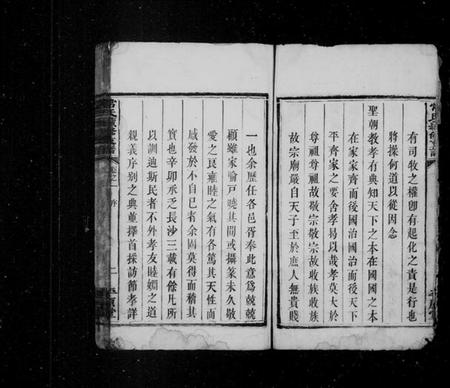 有司牧之權卽有起化之責是行也
將操何道以從因念
聖朝敎孝有典知天下之本在國國之本
在家家齊而後國治國治而後天下
平齊家之要舍孝易以哉孝莫大於
尊祖尊祖故敬宗敬宗故收族收族
故宗廟嚴自天子至於庶人無貴賤
一也余歷任各邑胥奉此意爲兢兢
顧雖家喻戸曉其間或攝篆未久敬
愛之良雍睦之氣有各篤其天性而
感發於不自已者余固莫得而稽其
實也辛卯承乏長沙三載有餘凡所
以訓迪斯民者不外孝友睦婣之道
親義序别之典並擇首採訪節孝詳